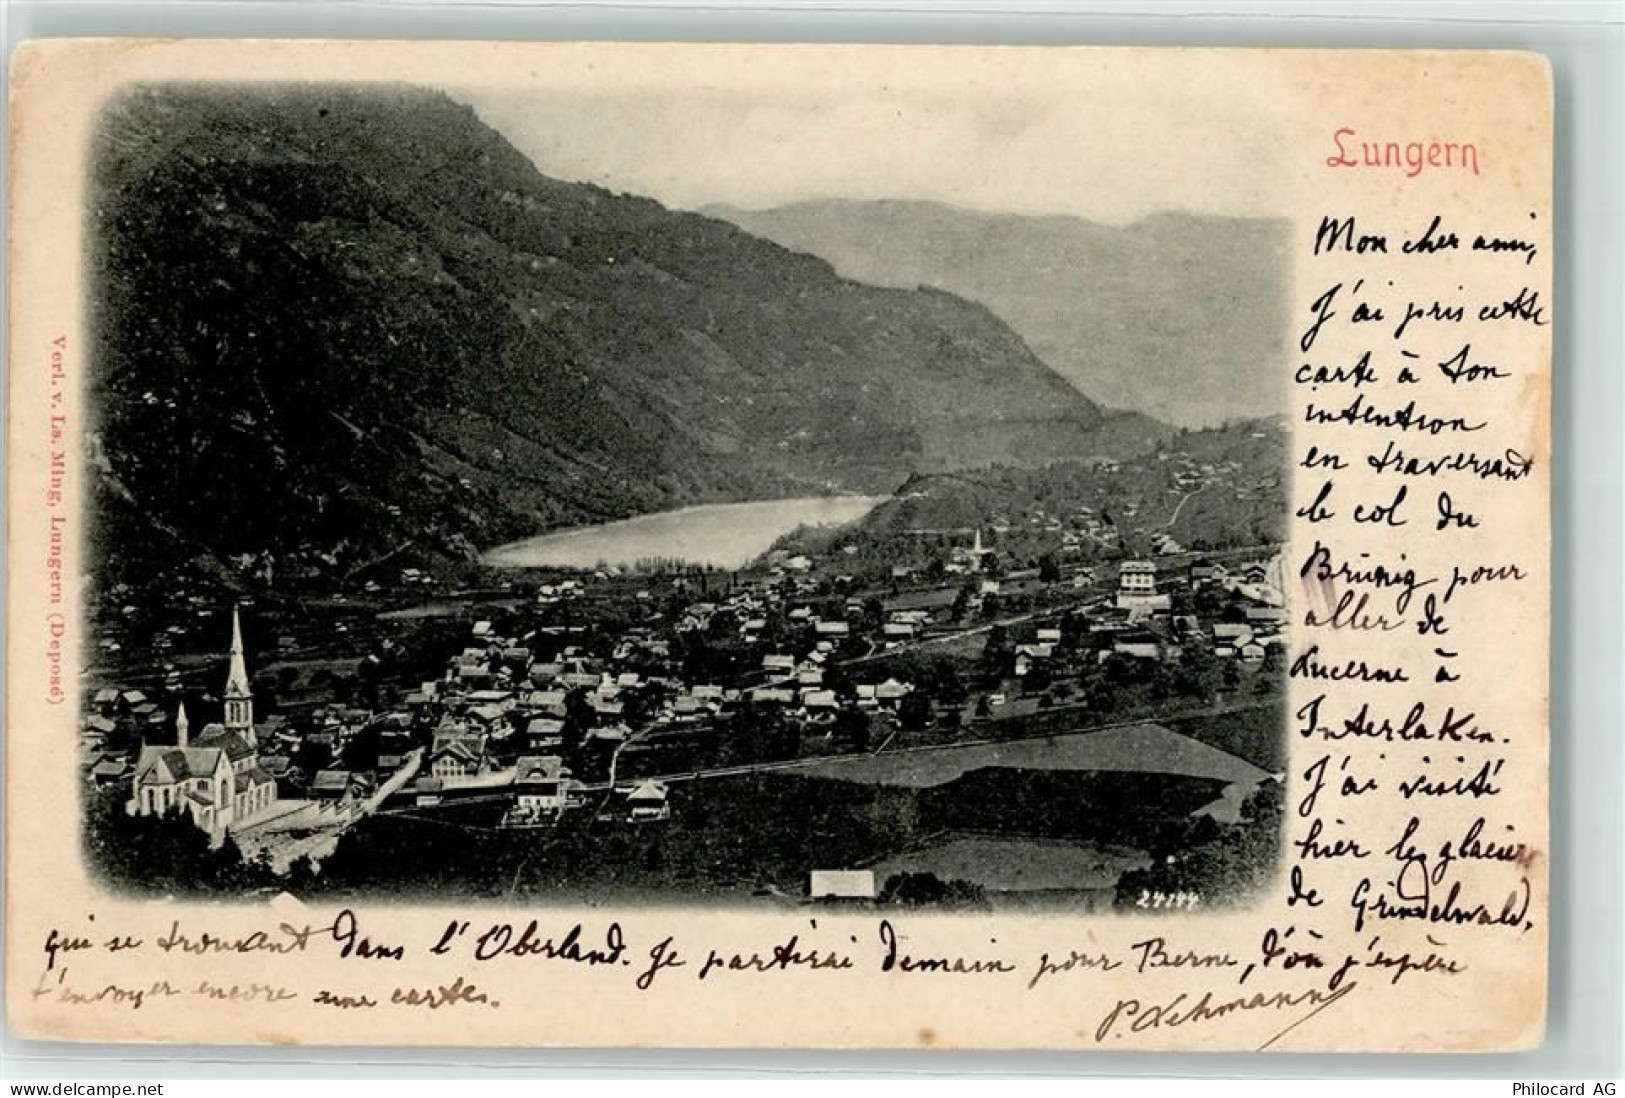 Lungern
Mon cher ami,
J'ai pris cette
carte à ton
intention
en traversant
le col du
Brünig pour
aller de
Lucerne à
Interlaken.
J'ai visité
hier les glaciers
de Grindelwald,
qui se trouvent dans l'Oberland. Je partirai demain pour Berne, d'où j'espère
t'envoyer encore une cartes.
P. Lehmann
Verl. v. Ls. Ming, Lungern (Deposé)
24144
www.delcampe.net
Philocard AG